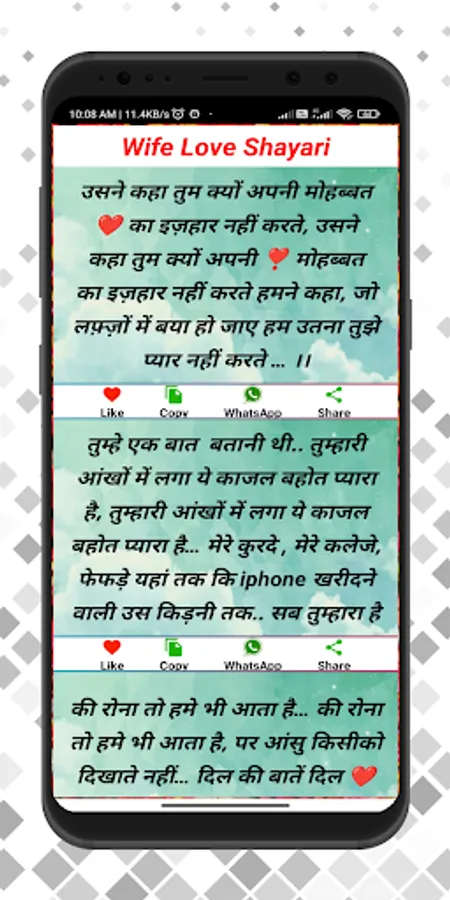 10:08 AM | 11.4KB/s
Wife Love Shayari
उसने कहा तुम क्यों अपनी मोहब्बत
❤️ का इज़हार नहीं करते, उसने
कहा तुम क्यों अपनी ❣️ मोहब्बत
का इज़हार नहीं करते हमने कहा, जो
लफ़्ज़ों में बया हो जाए हम उतना तुझे
प्यार नहीं करते ... ।।
Like Copy WhatsApp Share
तुम्हे एक बात बतानी थी.. तुम्हारी
आंखों में लगा ये काजल बहोत प्यारा
है, तुम्हारी आंखों में लगा ये काजल
बहोत प्यारा है... मेरे कुरदे , मेरे कलेजे,
फेफड़े यहां तक कि iphone खरीदने
वाली उस किड़नी तक.. सब तुम्हारा है
Like Copy WhatsApp Share
की रोना तो हमे भी आता है... की रोना
तो हमे भी आता है, पर आंसु किसीको
दिखाते नहीं... दिल की बातें दिल ❤️